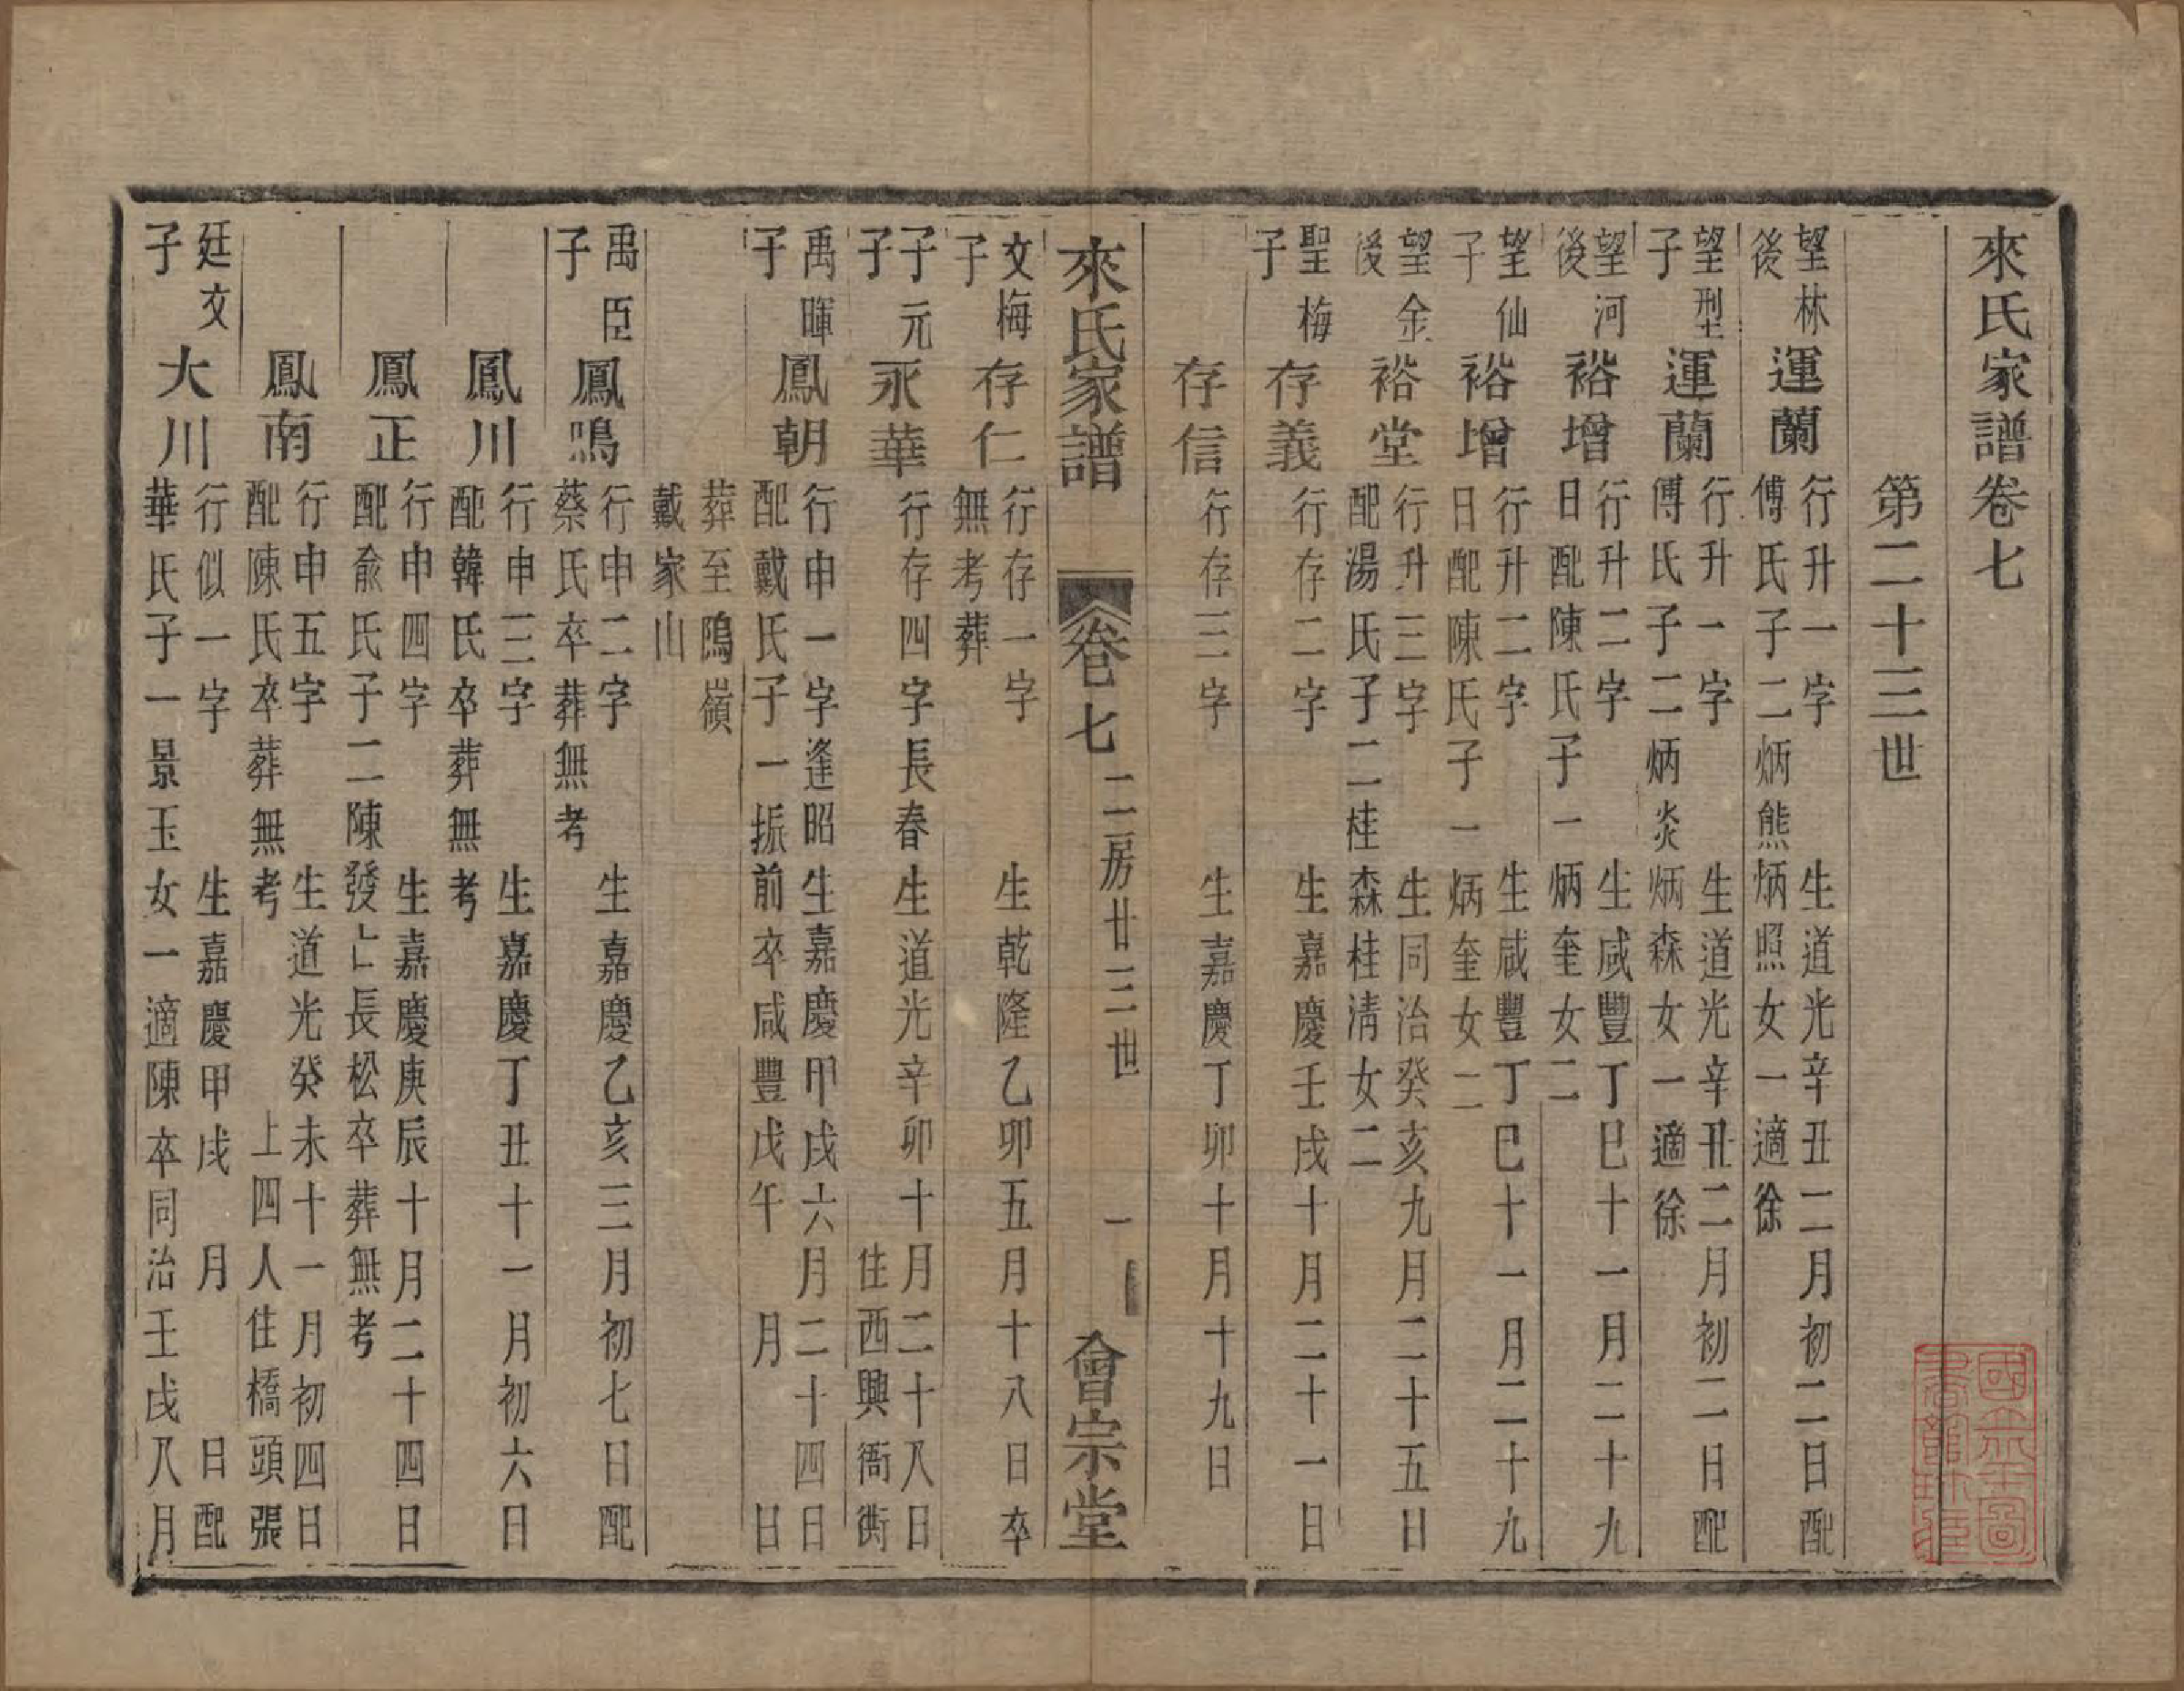 來氏家譜卷七
第二十三世
望林
後
運蘭
行升一字　生道光辛丑二月初二日配
傅氏子二炳熊炳照女一適徐
望型
子
運蘭
行升一字　生道光辛丑二月初二日配
傅氏子二炳炎炳森女一適徐
望河
後
裕增
行升二字　生咸豐丁巳十一月二十九
日配陳氏子一炳奎女二
望仙
子
裕增
行升二字　生咸豐丁巳十一月二十九
日配陳氏子一炳奎女二
望金
後
裕堂
行升三字　生同治癸亥九月二十五日
配湯氏子二桂森桂清女二
聖梅
子
存義
行存二字　生嘉慶壬戌十月二十一日
存信
行存三字　生嘉慶丁卯十月十九日
來氏家譜　卷七　二房廿三世　一　會宗堂
文梅
子
存仁
行存一字　生乾隆乙卯五月十八日卒
無考葬
子元
子
永華
行存四字長春生道光辛卯十月二十八日
住西興衙衖
禹暉
子
鳳朝
行申一字逢昭生嘉慶甲戌六月二十四日
配戴氏子一振前卒咸豐戊午　月　日
葬至隖嶺
戴家山
禹臣
子
鳳鳴
行申二字　生嘉慶乙亥三月初七日配
蔡氏卒葬無考
鳳川
行申三字　生嘉慶丁丑十一月初六日
配韓氏卒葬無考
鳳正
行申四字　生嘉慶庚辰十月二十四日
配俞氏子二陳發亡長松卒葬無考
鳳南
行申五字　生道光癸未十一月初四日
配陳氏卒葬無考　上四人住橋頭張
廷文
子
大川
行似一字　生嘉慶甲戌　月　日配
華氏子一景玉女一適陳卒同治壬戌八月